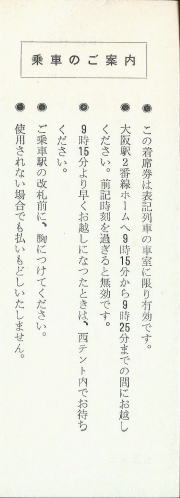 乗車のご案内
● この着席券は表記列車の車室に限り有効です。
● 大阪駅2番線ホームへ9時15分から9時25分までの間にお越し
ください。前記時刻を過ぎると無効です。
● 9時15分より早くお越しになつたときは、西テント内でお待ち
ください。
● ご乗車駅の改札前に、胸につけてください。
● 使用されない場合でも払いもどしいたしません。